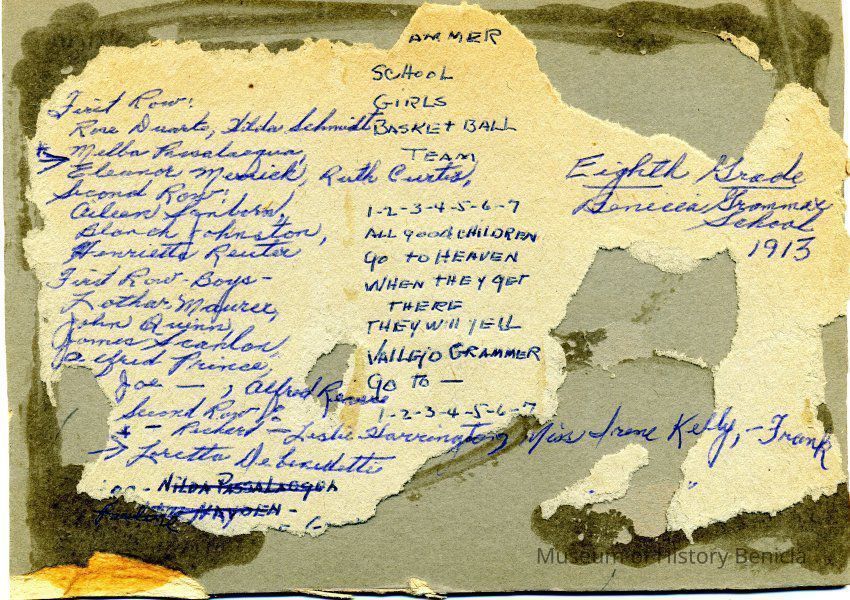 First Row:
Rose Duarte, Hilda Schmidt
Melba Passalacqua,
Eleanor Merrick, Ruth Curtis,
Second Row:
Aileen Sanborn,
Blanch Johnston,
Henrietta Reuter
First Row-Boys-
Lothar Maurer,
John Quinn,
James Scanlon,
Alfred Prince,
Joe — , Alfred
Second Row
- Richard - Leslie Harrington, Miss Irene Kelly, - Frank
Loretta Debenedetti
Nilda Passalacqua
HAYDEN -
AMMER
SCHOOL
GIRLS
BASKET BALL
TEAM
1-2-3-4-5-6-7
ALL GOOD CHILDREN
GO TO HEAVEN
WHEN THEY GET
THERE
THEY WILL YELL
VALLEJO GRAMMER
GO TO —
1-2-3-4-5-6-7
Eighth Grade
Benicia Grammar
School
1913
Museum of History Benicia